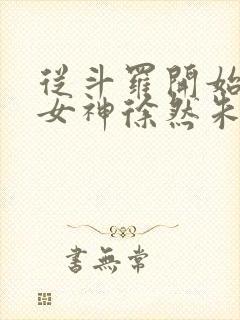 從斗羅開始
女神徐然朱
書無常